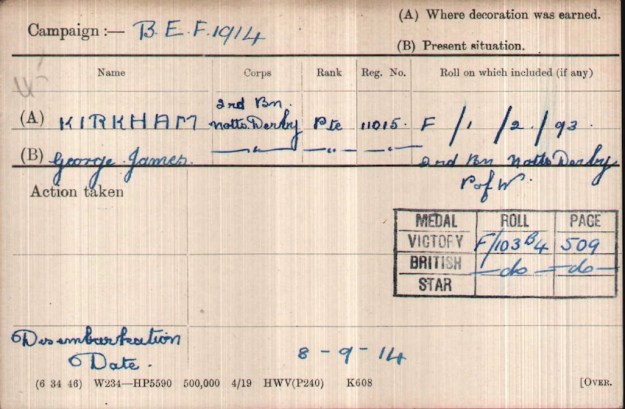 (A) Where decoration was earned.
Campaign :— B.E.F. 1914
(B) Present situation.
Name Corps Rank Reg. No. Roll on which included (if any)
2nd Bn.
(A) KIRKHAM Notts. Derby Pte 11015. F/1/2/93
(B) George James. —"— —"— —"— 2nd Bn Notts Derby
P of W.
Action taken
MEDAL ROLL PAGE
VICTORY F/103 B4 509
BRITISH —do— —do—
STAR
Disembarkation
Date. 8-9-14
(6 34 46) W234—HP5590 500,000 4/19 HWV(P240) K608 [OVER.